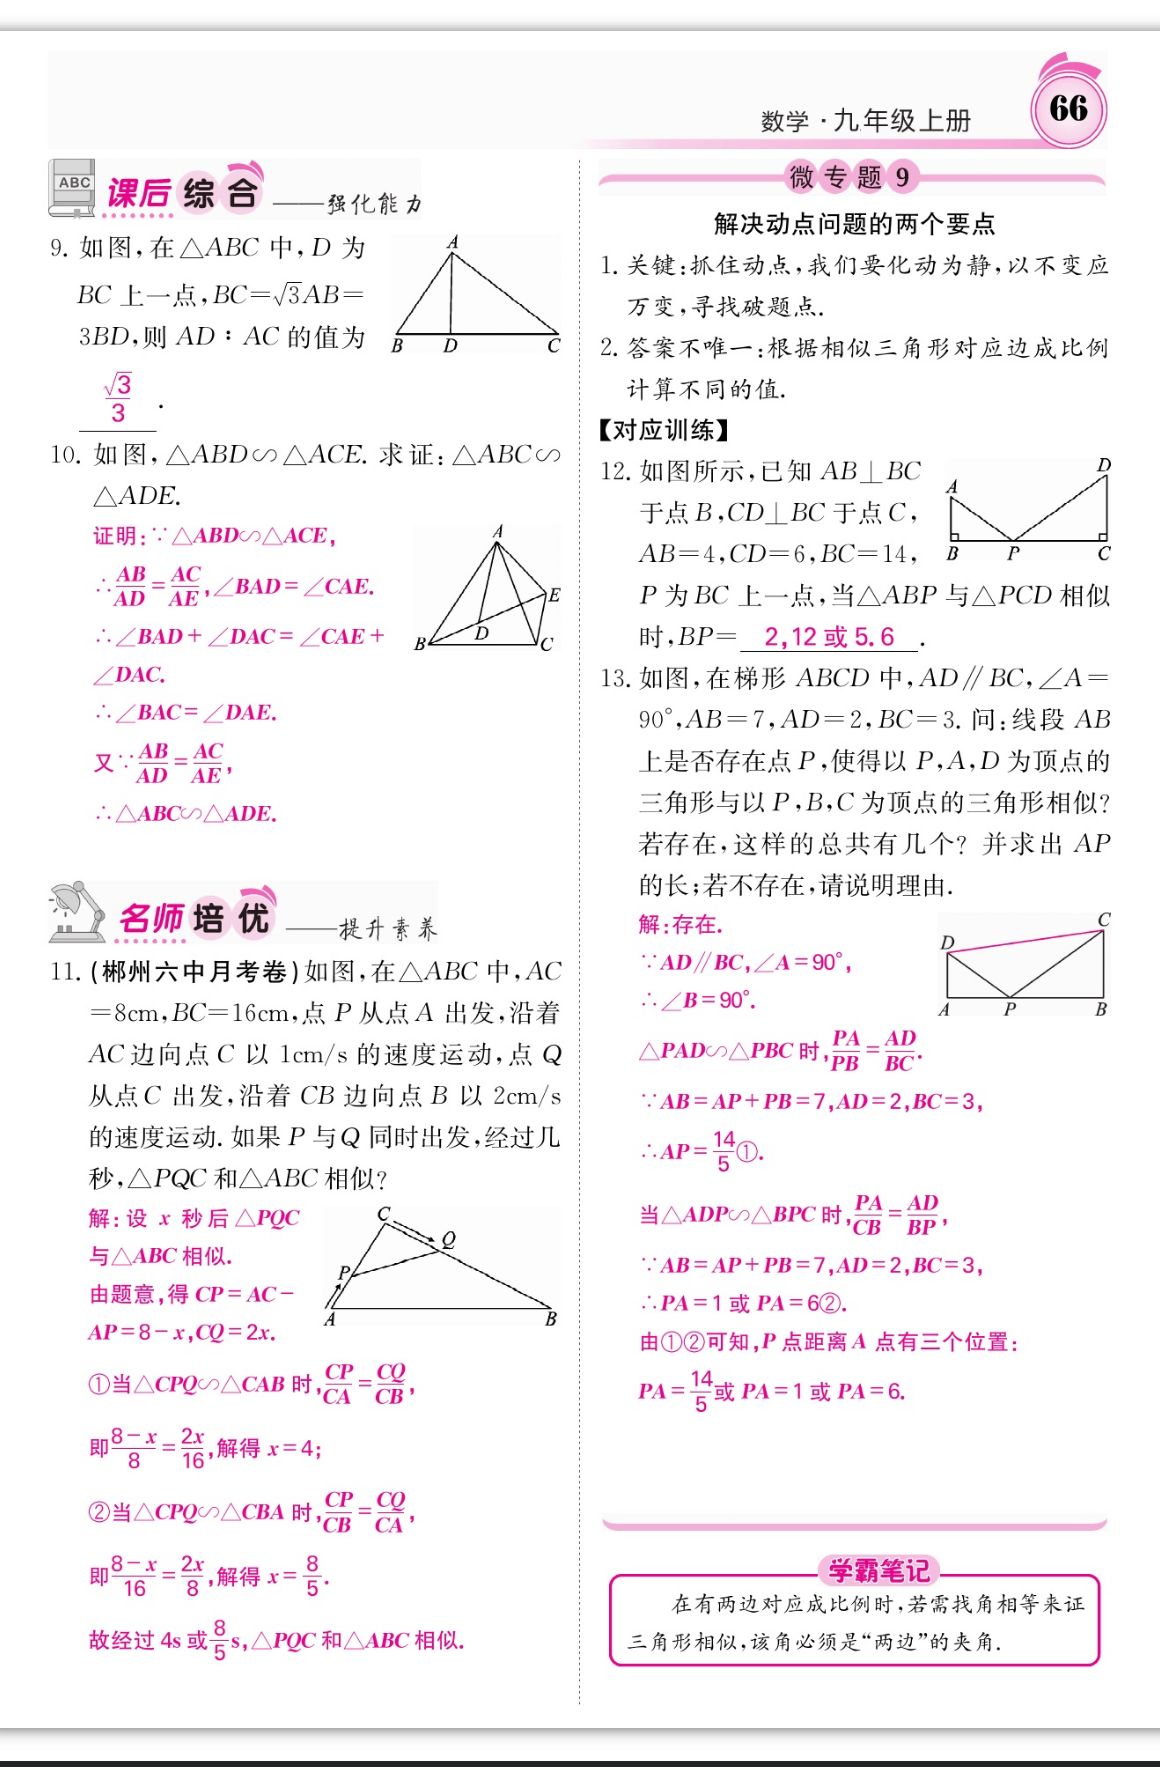 数学·九年级上册
66
ABC
课后综合——强化能力
9. 如图,在△ABC 中,D 为
BC 上一点,BC=√3AB=
3BD,则 AD∶AC 的值为
√3/3.
A
B D C
10. 如图,△ABD∽△ACE. 求证:△ABC∽
△ADE.
证明:∵△ABD∽△ACE,
∴AB/AD=AC/AE,∠BAD=∠CAE.
∴∠BAD+∠DAC=∠CAE+
∠DAC.
∴∠BAC=∠DAE.
又∵AB/AD=AC/AE,
∴△ABC∽△ADE.
A
E
D
B C
名师培优——提升素养
11. (郴州六中月考卷)如图,在△ABC 中,AC
=8cm,BC=16cm,点 P 从点 A 出发,沿着
AC 边向点 C 以 1cm/s 的速度运动,点 Q
从点 C 出发,沿着 CB 边向点 B 以 2cm/s
的速度运动. 如果 P 与 Q 同时出发,经过几
秒,△PQC 和△ABC 相似?
解:设 x 秒后△PQC
与△ABC 相似.
由题意,得 CP=AC-
AP=8-x,CQ=2x.
C
Q
P
A B
①当△CPQ∽△CAB 时,CP/CA=CQ/CB,
即(8-x)/8=2x/16,解得 x=4;
②当△CPQ∽△CBA 时,CP/CB=CQ/CA,
即(8-x)/16=2x/8,解得 x=8/5.
故经过 4s 或8/5s,△PQC 和△ABC 相似.
微专题 9
解决动点问题的两个要点
1. 关键:抓住动点,我们要化动为静,以不变应
万变,寻找破题点.
2. 答案不唯一:根据相似三角形对应边成比例
计算不同的值.
【对应训练】
12. 如图所示,已知 AB⊥BC
于点 B,CD⊥BC 于点 C,
AB=4,CD=6,BC=14,
P 为 BC 上一点,当△ABP 与△PCD 相似
时,BP= 2,12 或 5.6 .
D
A
B P C
13. 如图,在梯形 ABCD 中,AD∥BC,∠A=
90°,AB=7,AD=2,BC=3. 问:线段 AB
上是否存在点 P,使得以 P,A,D 为顶点的
三角形与以 P,B,C 为顶点的三角形相似?
若存在,这样的总共有几个? 并求出 AP
的长;若不存在,请说明理由.
解:存在.
∵AD∥BC,∠A=90°,
∴∠B=90°.
C
D
A P B
△PAD∽△PBC 时,PA/PB=AD/BC.
∵AB=AP+PB=7,AD=2,BC=3,
∴AP=14/5①.
当△ADP∽△BPC 时,PA/CB=AD/BP,
∵AB=AP+PB=7,AD=2,BC=3,
∴PA=1 或 PA=6②.
由①②可知,P 点距离 A 点有三个位置:
PA=14/5或 PA=1 或 PA=6.
学霸笔记
在有两边对应成比例时,若需找角相等来证
三角形相似,该角必须是“两边”的夹角.